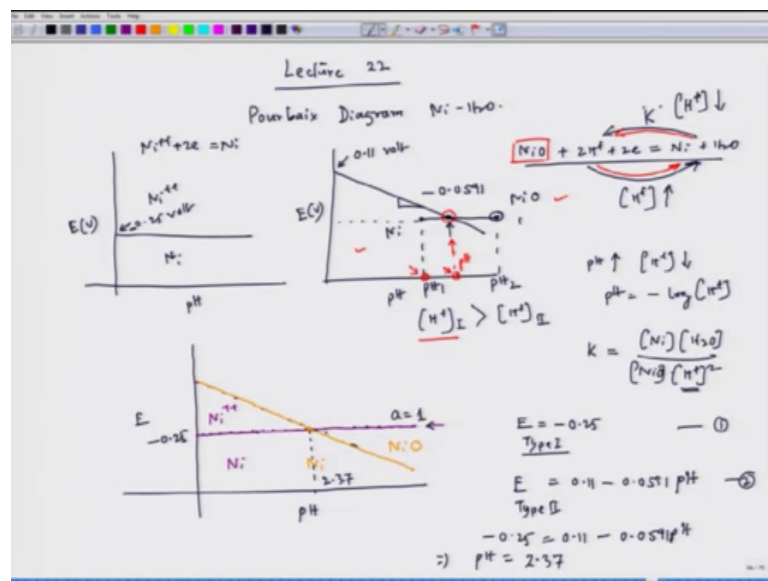 Lecture 22
Pourbaix Diagram Ni - H₂O.
Ni⁺⁺ + 2e = Ni
Ni⁺⁺
-0.25 volt
E(V)
Ni
pH
0.11 volt
-0.0591
E(V)
Ni
NiO
pH pH₁ pH pH₂
[H⁺]_I > [H⁺]_II
K [H⁺] ↓
NiO + 2H⁺ + 2e = Ni + H₂O
[H⁺] ↑
pH ↑ [H⁺] ↓
pH = - log [H⁺]
K = [Ni] [H₂O] / [NiO] [H⁺]²
E
Ni⁺⁺
a = 1
-0.25
Ni Ni NiO
2.37
pH
E = -0.25 — ①
Type I
E = 0.11 - 0.0591 pH — ②
Type II
-0.25 = 0.11 - 0.0591 pH
=) pH = 2.37